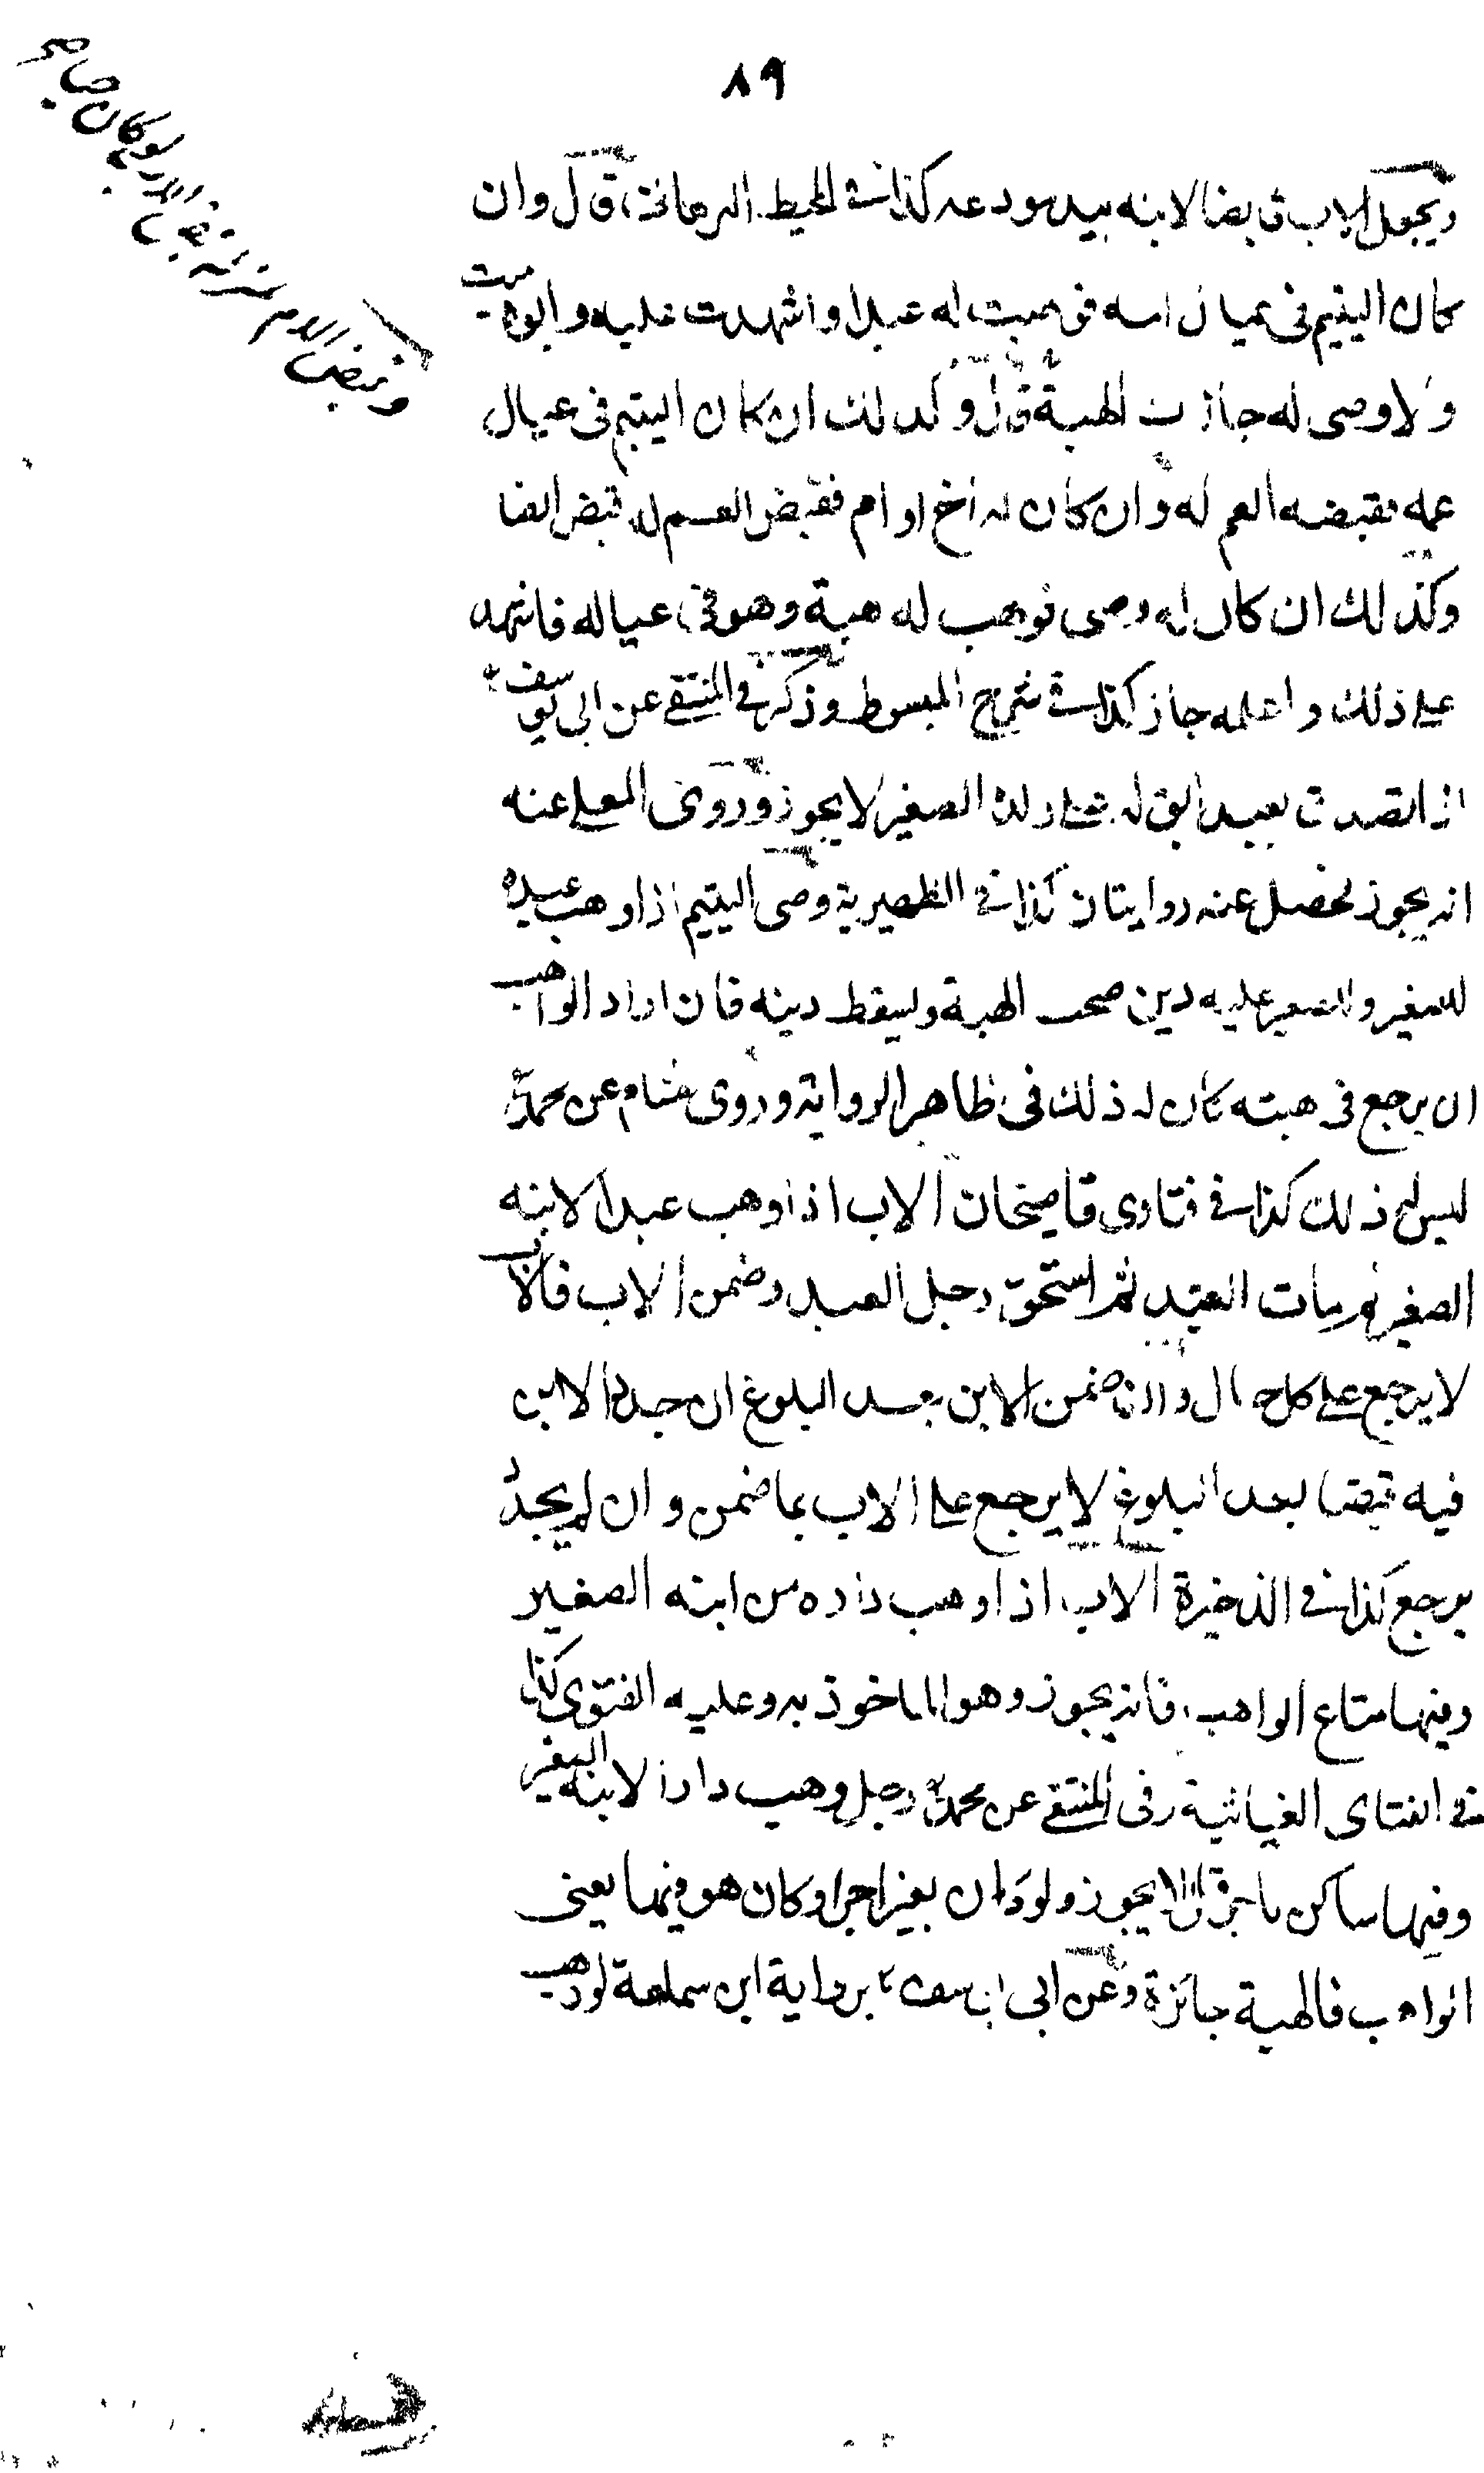 ٨٩
ويجعل الاب قابضا لابنه بيد مودعه كذا في المحيط البرهاني، قال وان
كان اليتيم في عيال امه فوهبت له عبدا واشهدت عليه وابوه ميت
ولا وصى له جازت الهبة قال وكذلك ان كان اليتيم في عيال
عمه فقبضه العم له وان كان له اخ او ام فقبض العم له قبض ايضا
وكذلك ان كان له وصى فوهب له هبة وهو في عياله فاشهد
على ذلك واعلمه جاز كذا في شرح المبسوط وذكر في المنتقى عن ابي يوسف
اذا تصدق بعبد ابق له على ولده الصغير لا يجوز وروى المعلى عنه
انه يجوز فحصل عنه روايتان كذا في الظهيرية وصى اليتيم اذا وهب عبده
للصغير وللصغير عليه دين صحت الهبة ويسقط دينه فان اراد الواهب
ان يرجع في هبته كان له ذلك في ظاهر الرواية وروى هشام عن محمد
ليس له ذلك كذا في فتاوى قاضيخان الاب اذا وهب عبدا لابنه
الصغير ثم مات العبد ثم استحق رجل العبد وضمن الاب فالاب
لا يرجع على كل حال وان ضمن الابن بعد البلوغ ان جدد الابن
فيه قبضا بعد البلوغ لا يرجع على الاب بما ضمن وان لم يجدد
يرجع كذا في الذخيرة الاب اذا وهب داره من ابنه الصغير
وفيها متاع الواهب، فانه يجوز وهو الماخوذ به وعليه الفتوى كذا
في الفتاى الغياثية وفي المنتقى عن محمد رجل وهب دارا لابنه الصغير
وفيها ساكن باجر قال لا يجوز ولو كان بغير اجر او كان هو فيها يعني
الواهب فالهبة جائزة وعن ابي يوسف برواية ابن سماعة لو وهب